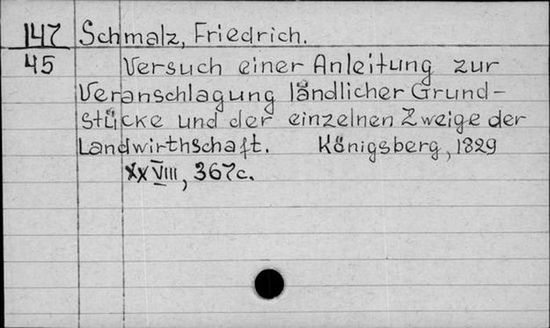 147 Schmalz, Friedrich.
45 Versuch einer Anleitung zur
Veranschlagung ländlicher Grund-
stücke und der einzelnen Zweige der
Landwirthschaft. Königsberg, 1829
XXVIII, 367c.